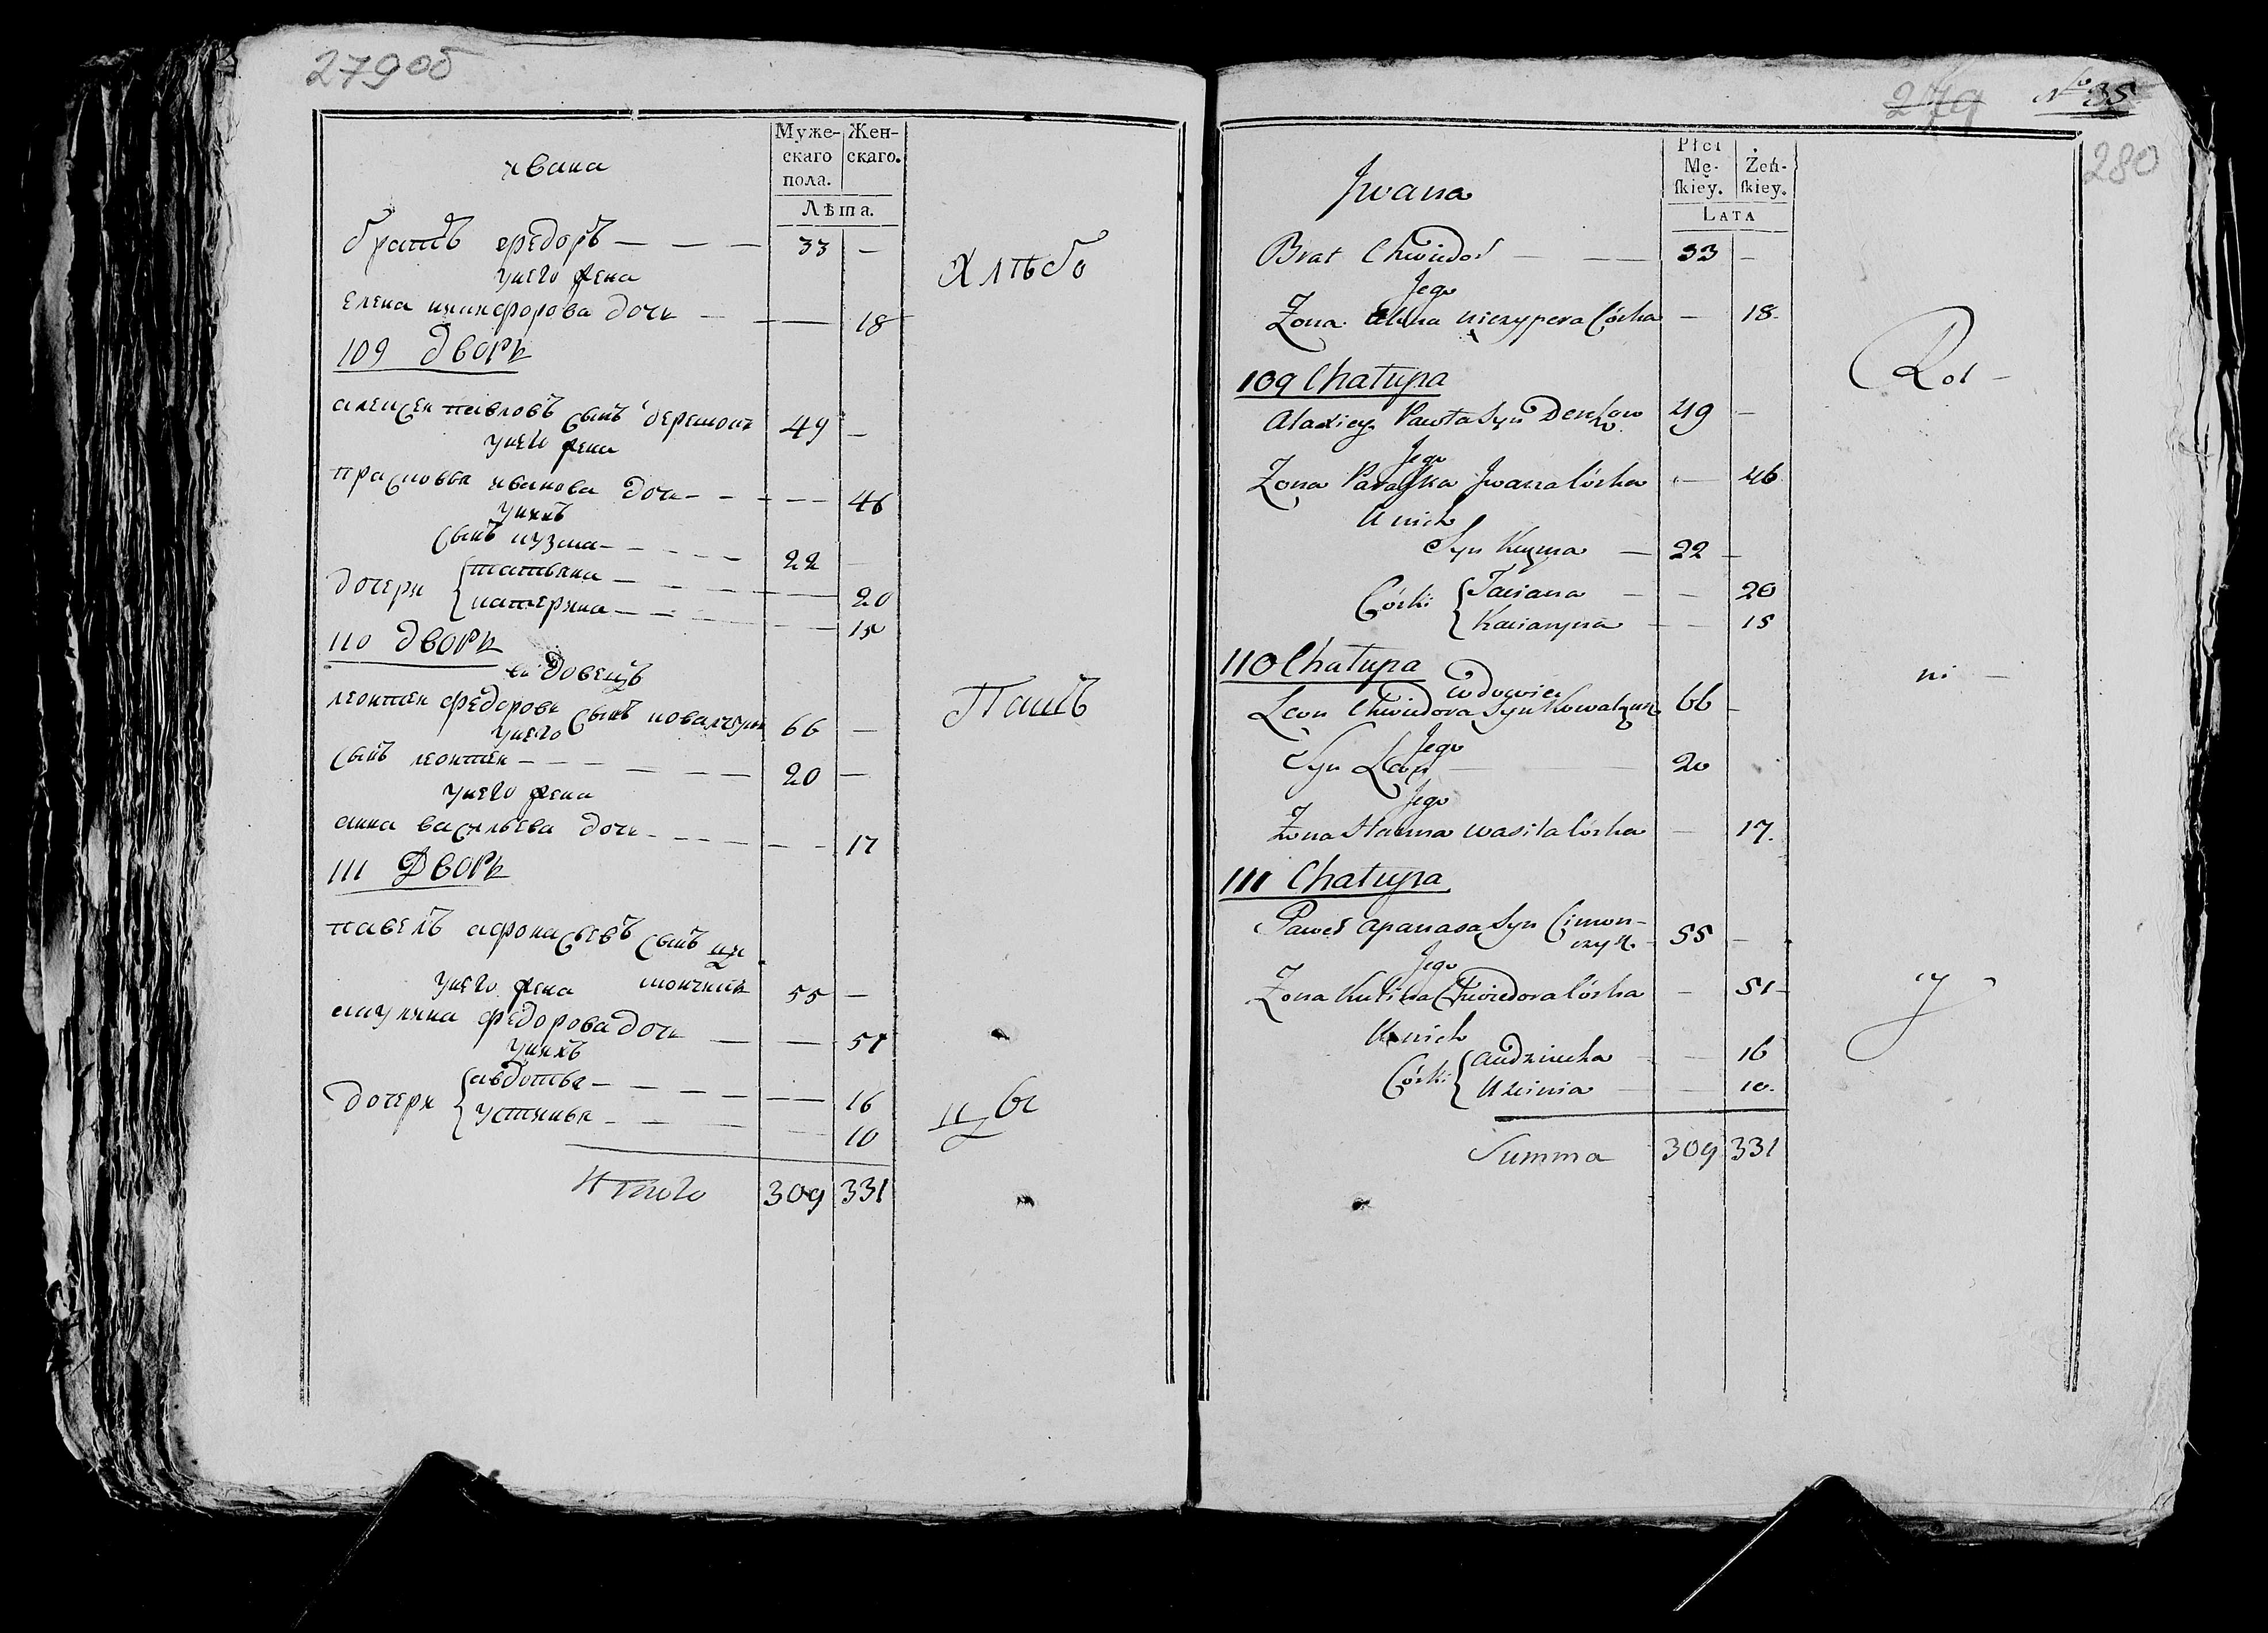 279об
Муже-
скаго
пола.
Жен-
скаго.
Лѣта.
Ивана
братъ Федоръ — — — 33 —
у него жена
Елена никифорова дочь — — 18
109 Дворъ
алексеи павловъ сынъ 49 —
у него жена
прасковья иванова дочь — — — 46
у нихъ
сынъ кузма — — — 22 —
дочери { татьяна — — — 20
катерина — — — 15
110 Дворъ
вдовецъ
леонтеи Федоровъ сынъ ковалчукъ 66 —
у него
сынъ леонтеи — — — 20 —
у него жена
анна васильева дочь — — — 17
111 Дворъ
павелъ афонасьевъ сынъ ци
мончикъ 55 —
у него жена
акулина Федорова дочь — — 51
у нихъ
дочери { авдотья — — — 16
устинья — — — 10
Итого 309 331
Хлѣбо
Паш
цы
279 No 35
280
Płci
Mę-
ſkiey.
Żeń-
ſkiey.
LATA
Jwana
Brat Chwiedor — — 33 —
Jego
Zona Alena niczypera Córka — 18
109 Chałupa
Alaxiey Pawła Syn 49 —
Jego
Zona Paraska Jwana Córka — 46
U nich
Syn Kuzma — 22 —
Córki { Taciana — — 20
Kaciaryna — — 15
110 Chałupa
wdowiec
Leon Chwiedora Syn Kowalczuk 66 —
Jego
Syn Leon — 20
Jego
Zona Hanna wasila Córka — 17.
111 Chałupa
Paweł apanasa Syn Cimon-
czyk 55 —
Jego
Zona Kulina Chwiedora Córka — 51
U nich
Córki { audziucha — — 16
Uscinia — — 10.
Summa 309 331
Rol —
ni —
cy